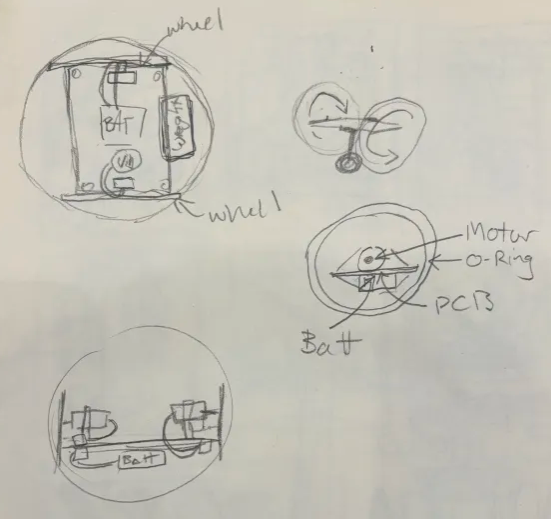 wheel
BAT
wheel
Motor
O-Ring
PCB
Batt
Batt